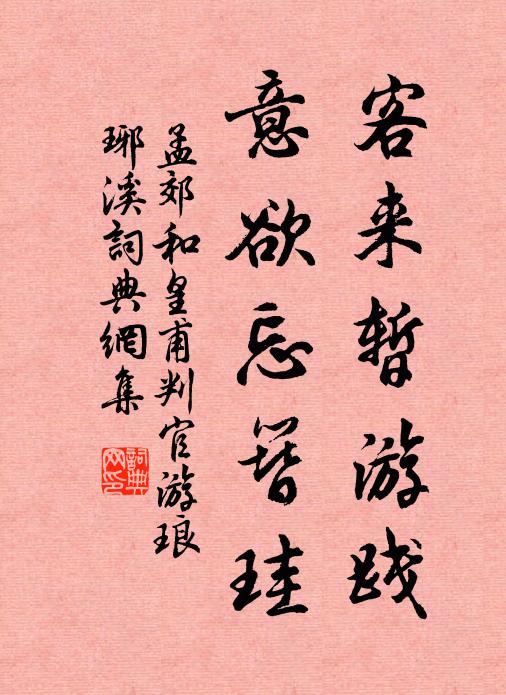 客来暫游践
意欲忘簪珪
孟郊和皇甫判官游琅
琊溪詞典網集
詞典网印